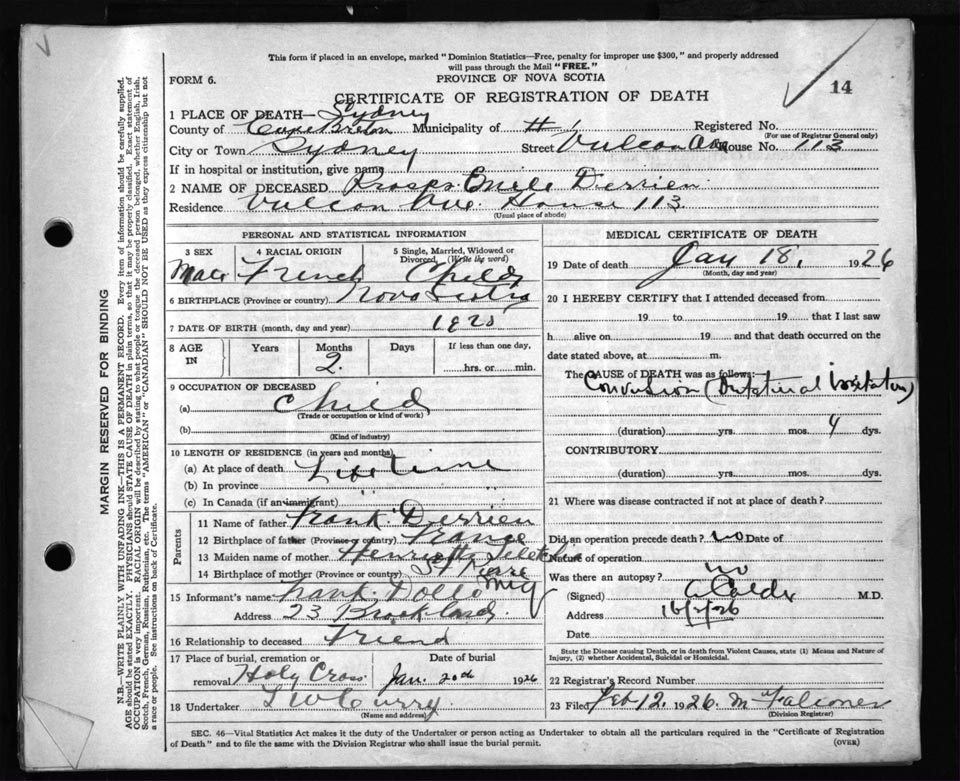 This form if placed in an envelope, marked "Dominion Statistics—Free, penalty for improper use $300," and properly addressed
will pass through the Mail "FREE."
FORM 6.
PROVINCE OF NOVA SCOTIA
14
CERTIFICATE OF REGISTRATION OF DEATH
1 PLACE OF DEATH— Sydney
County of Cape Breton Municipality of Registered No.
(For use of Registrar General only)
City or Town Sydney Street Vulcan Ave House No. 113
If in hospital or institution, give name
2 NAME OF DECEASED Emile Derrien
Residence Vulcan Ave. House 113.
(Usual place of abode)
PERSONAL AND STATISTICAL INFORMATION
3 SEX 4 RACIAL ORIGIN 5 Single, Married, Widowed or Divorced (Write the word)
Male French Child
6 BIRTHPLACE (Province or country) Nova Scotia
7 DATE OF BIRTH (month, day and year) 1925
8 AGE IN Years Months Days If less than one day,
2. hrs. or min.
9 OCCUPATION OF DECEASED
(a) Child
(Trade or occupation or kind of work)
(b)
(Kind of industry)
10 LENGTH OF RESIDENCE (in years and months)
(a) At place of death Life Time
(b) In province " "
(c) In Canada (if an immigrant) " "
Parents
11 Name of father Frank Derrien
12 Birthplace of father (Province or country) France
13 Maiden name of mother Henrietta
14 Birthplace of mother (Province or country) St Pierre Miq
15 Informant's name Frank Dollo
Address 23 Brookland
16 Relationship to deceased Friend
17 Place of burial, cremation or removal Holy Cross Date of burial Jan. 20th 1926
18 Undertaker T W Curry
(Name and address)
MEDICAL CERTIFICATE OF DEATH
19 Date of death Jan 18, 1926
(Month, day and year)
20 I HEREBY CERTIFY that I attended deceased from
19 to 19 that I last saw
h alive on 19 and that death occurred on the
date stated above, at m.
The CAUSE OF DEATH was as follows:
Convulsion (Intestinal Irritation)
(duration) yrs. mos. 4 dys.
CONTRIBUTORY
(duration) yrs. mos. dys.
21 Where was disease contracted if not at place of death?
Did an operation precede death? no Date of
Nature of operation
Was there an autopsy? no
(Signed) A Calder M.D.
Address 16/2/26
Date
State the Disease causing Death, or in death from Violent Causes, state (1) Means and Nature of
Injury, (2) whether Accidental, Suicidal or Homicidal.
22 Registrar's Record Number
23 Filed Feb 12. 1926. M Falconer
(Division Registrar)
SEC. 46—Vital Statistics Act makes it the duty of the Undertaker or person acting as Undertaker to obtain all the particulars required in the "Certificate of Registration
of Death" and to file the same with the Division Registrar who shall issue the burial permit.
(OVER)
MARGIN RESERVED FOR BINDING
N.B.—WRITE PLAINLY WITH UNFADING INK—THIS IS A PERMANENT RECORD. Every item of information should be carefully supplied.
AGE should be stated EXACTLY. PHYSICIANS should STATE CAUSE OF DEATH in plain terms, so that it may be properly classified. Exact statement of
OCCUPATION is very important. RACIAL ORIGIN will be described by stating to what people or tongue the deceased person belonged, whether English, Irish,
Scotch, French, German, Russian, Ruthenian, etc. The terms "AMERICAN" or "CANADIAN" SHOULD NOT BE USED as they express citizenship but not
a race or people. See instructions on back of Certificate.